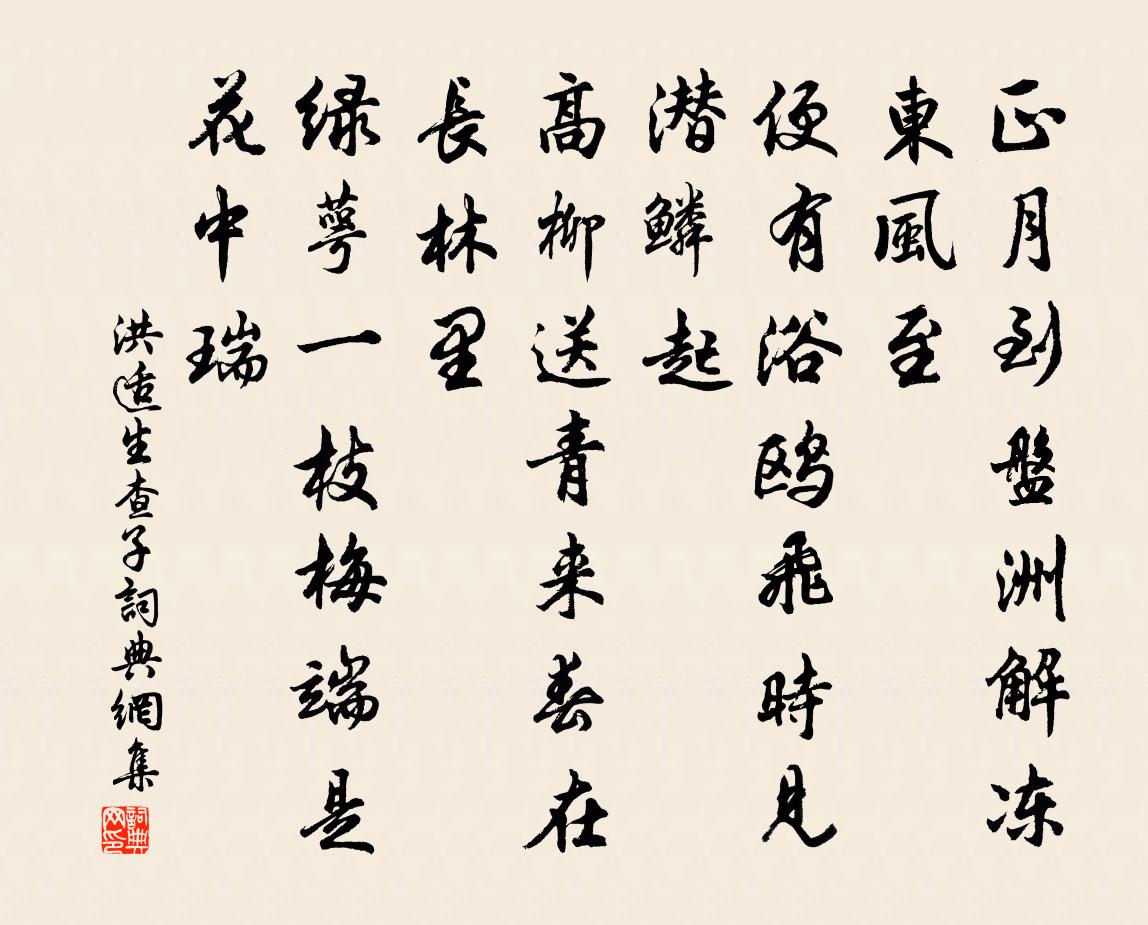 正月到盤洲解冻
東風至
便有浴鸥飛時見
潜鳞起
高柳送青来春在
長林里
緑萼一枝梅端是
花中瑞
洪适生查子詞典網集
詞典网印